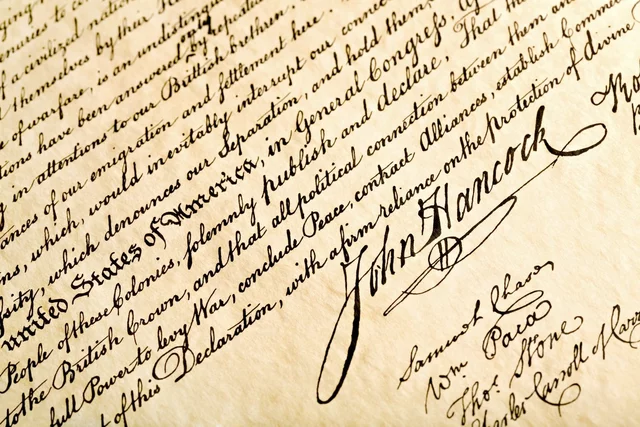 of a civilized nation
themselves by their
of warfare, is an undistinguis
tions have been answered by repeated
in attentions to our Brittish brethren.
ances of our emigration and settlement here.
ns, which, would inevitably interrupt our connec
sity, which denounces our Separation, and hold them,
united States of America, in General Congress,
People of these Colonies, solemnly publish and declare, That
to the British Crown, and that all political connection between them an
full Power to levy War, conclude Peace, contract Alliances, establish Commer
of this Declaration, with a firm reliance on the protection of divine
John Hancock
Samuel Chase
Wm Paca
Thos Stone
Charles Carroll of Carr